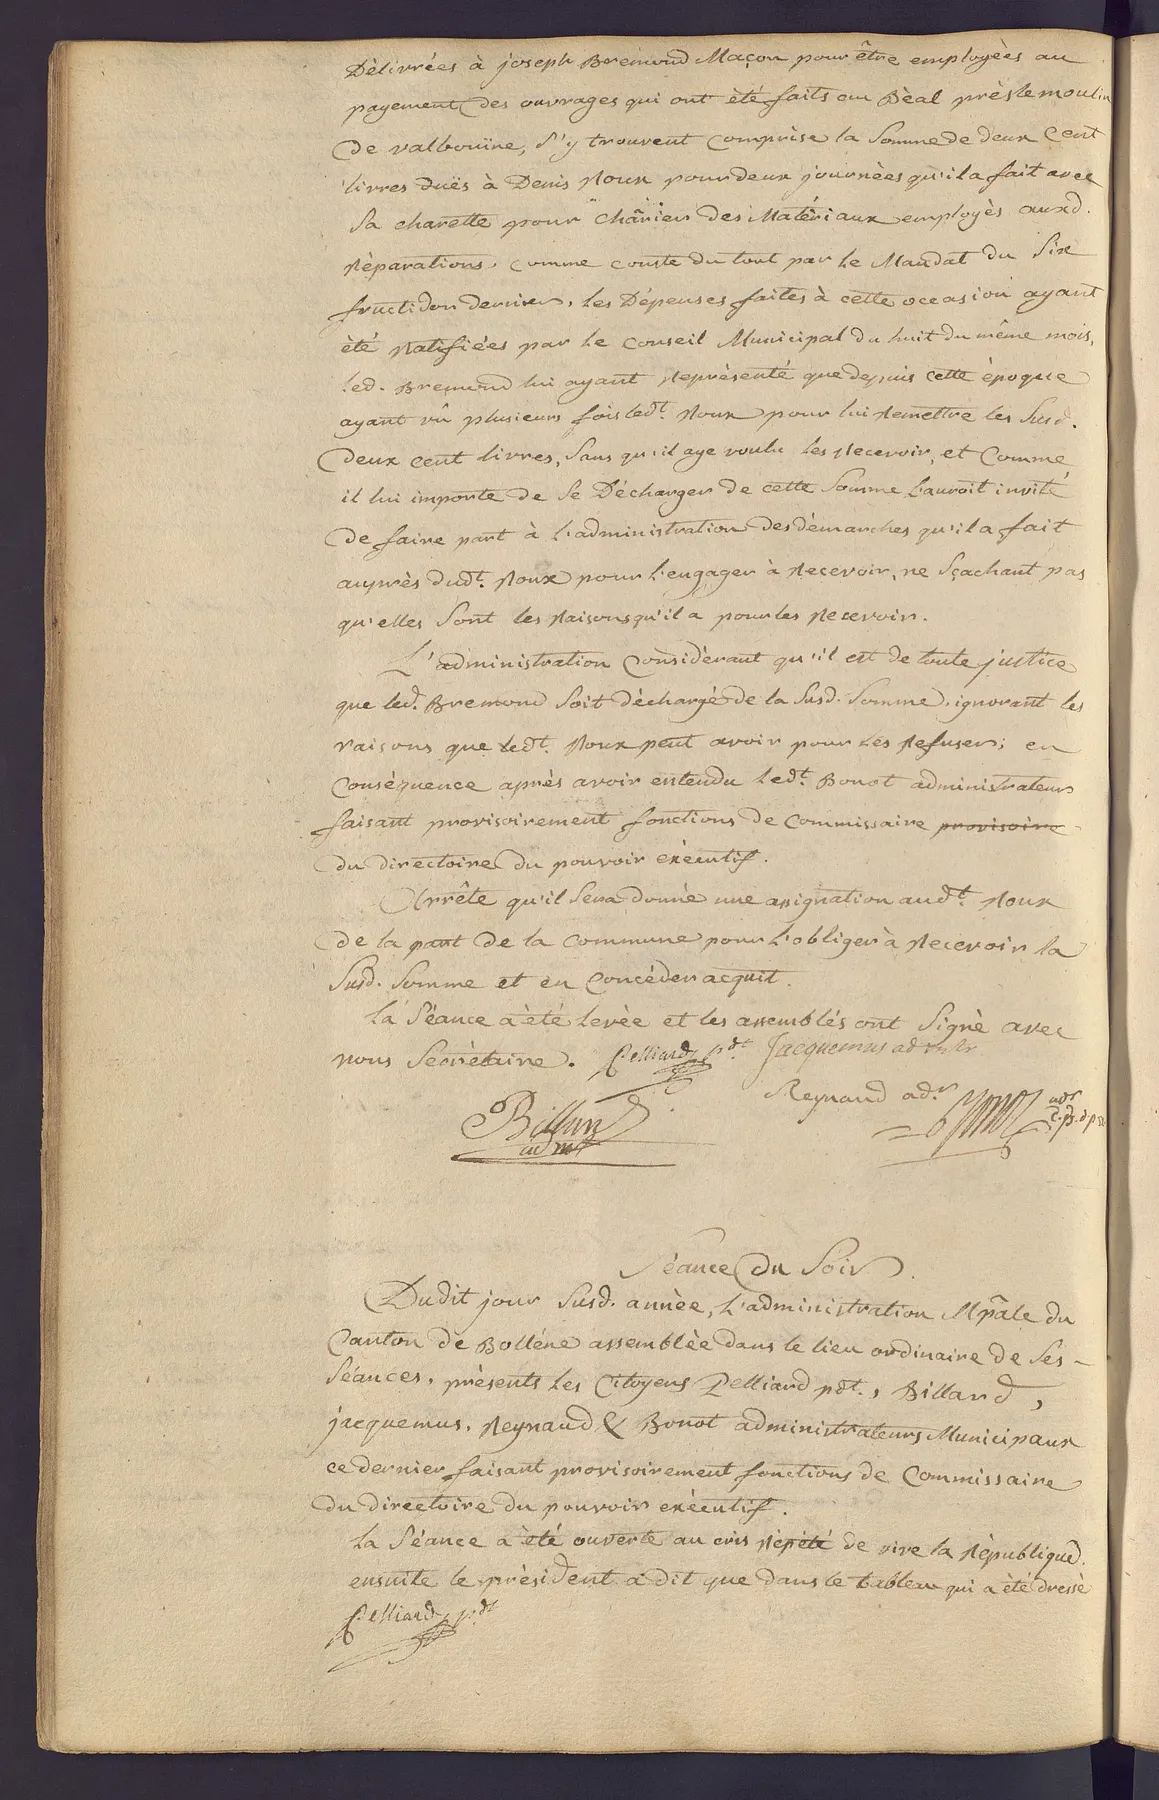 Délivrées à joseph Bremond Maçon pour être employées au
payement des ouvrages qui ont été faits au Béal près le moulin
de valbouïne, s'y trouvent comprise la Somme de deux Cent
livres duës à Denis Roux pour deux journées qu'il a fait avec
sa charette pour charier des Matériaux employés auxd.
Réparations. comme conste du tout par le Mandat du Six
fructidor dernier. les Dépenses faites à cette occasion ayant
été Ratifiées par le Conseil Municipal du huit du même mois,
led. Bremond lui ayant Représenté que depuis cette époque
ayant vû plusieurs fois ledt. Roux pour lui Remettre les Susd.
deux cent livres, Sans qu'il aye voulu les Recevoir, et Comme
il lui importe de se Décharger de cette Somme l'auroit invité
de faire part à l'administration des démarches qu'il a fait
auprès dudt. Roux pour l'engager à Recevoir, ne sçachant pas
qu'elles Sont les Raisons qu'il a pour les Recevoir.
L'administration Considérant qu'il est de toute justice
que led. Bremond Soit déchargé de la Susd. Somme, ignorant les
raisons que ledt. Roux peut avoir pour les Refuser; en
Conséquence après avoir entendu ledt. Bonot administrateur
faisant provisoirement fonctions de Commissaire provisoire
du directoire du pouvoir exécutif.
Arrête qu'il Sera donné une assignation audt. Roux
de la part de la Commune pour l'obliger à Recevoir la
Susd. Somme et en Concéder acquit.
la Séance a été levée et les assemblés ont Signé avec
nous Secrétaire. Pelliard pdt. Jacquemus
Reynaud adr. adr
Billard
adm
Séance du Soir.
Dudit jour Susd. année, L'administration Mpâle du
Canton de Bolléne assemblée dans le lieu ordinaire de Ses
Séances. présents les Citoyens Pelliard pdt., Billard,
jacquemus, Reynaud & Bonot administrateurs Municipaux
ce dernier faisant provisoirement fonctions de Commissaire
du directoire du pouvoir exécutif.
la Séance a été ouverte au cris Répété de vive la République.
ensuite le président a dit que dans le tableau qui a été dressé
Pelliard pdt